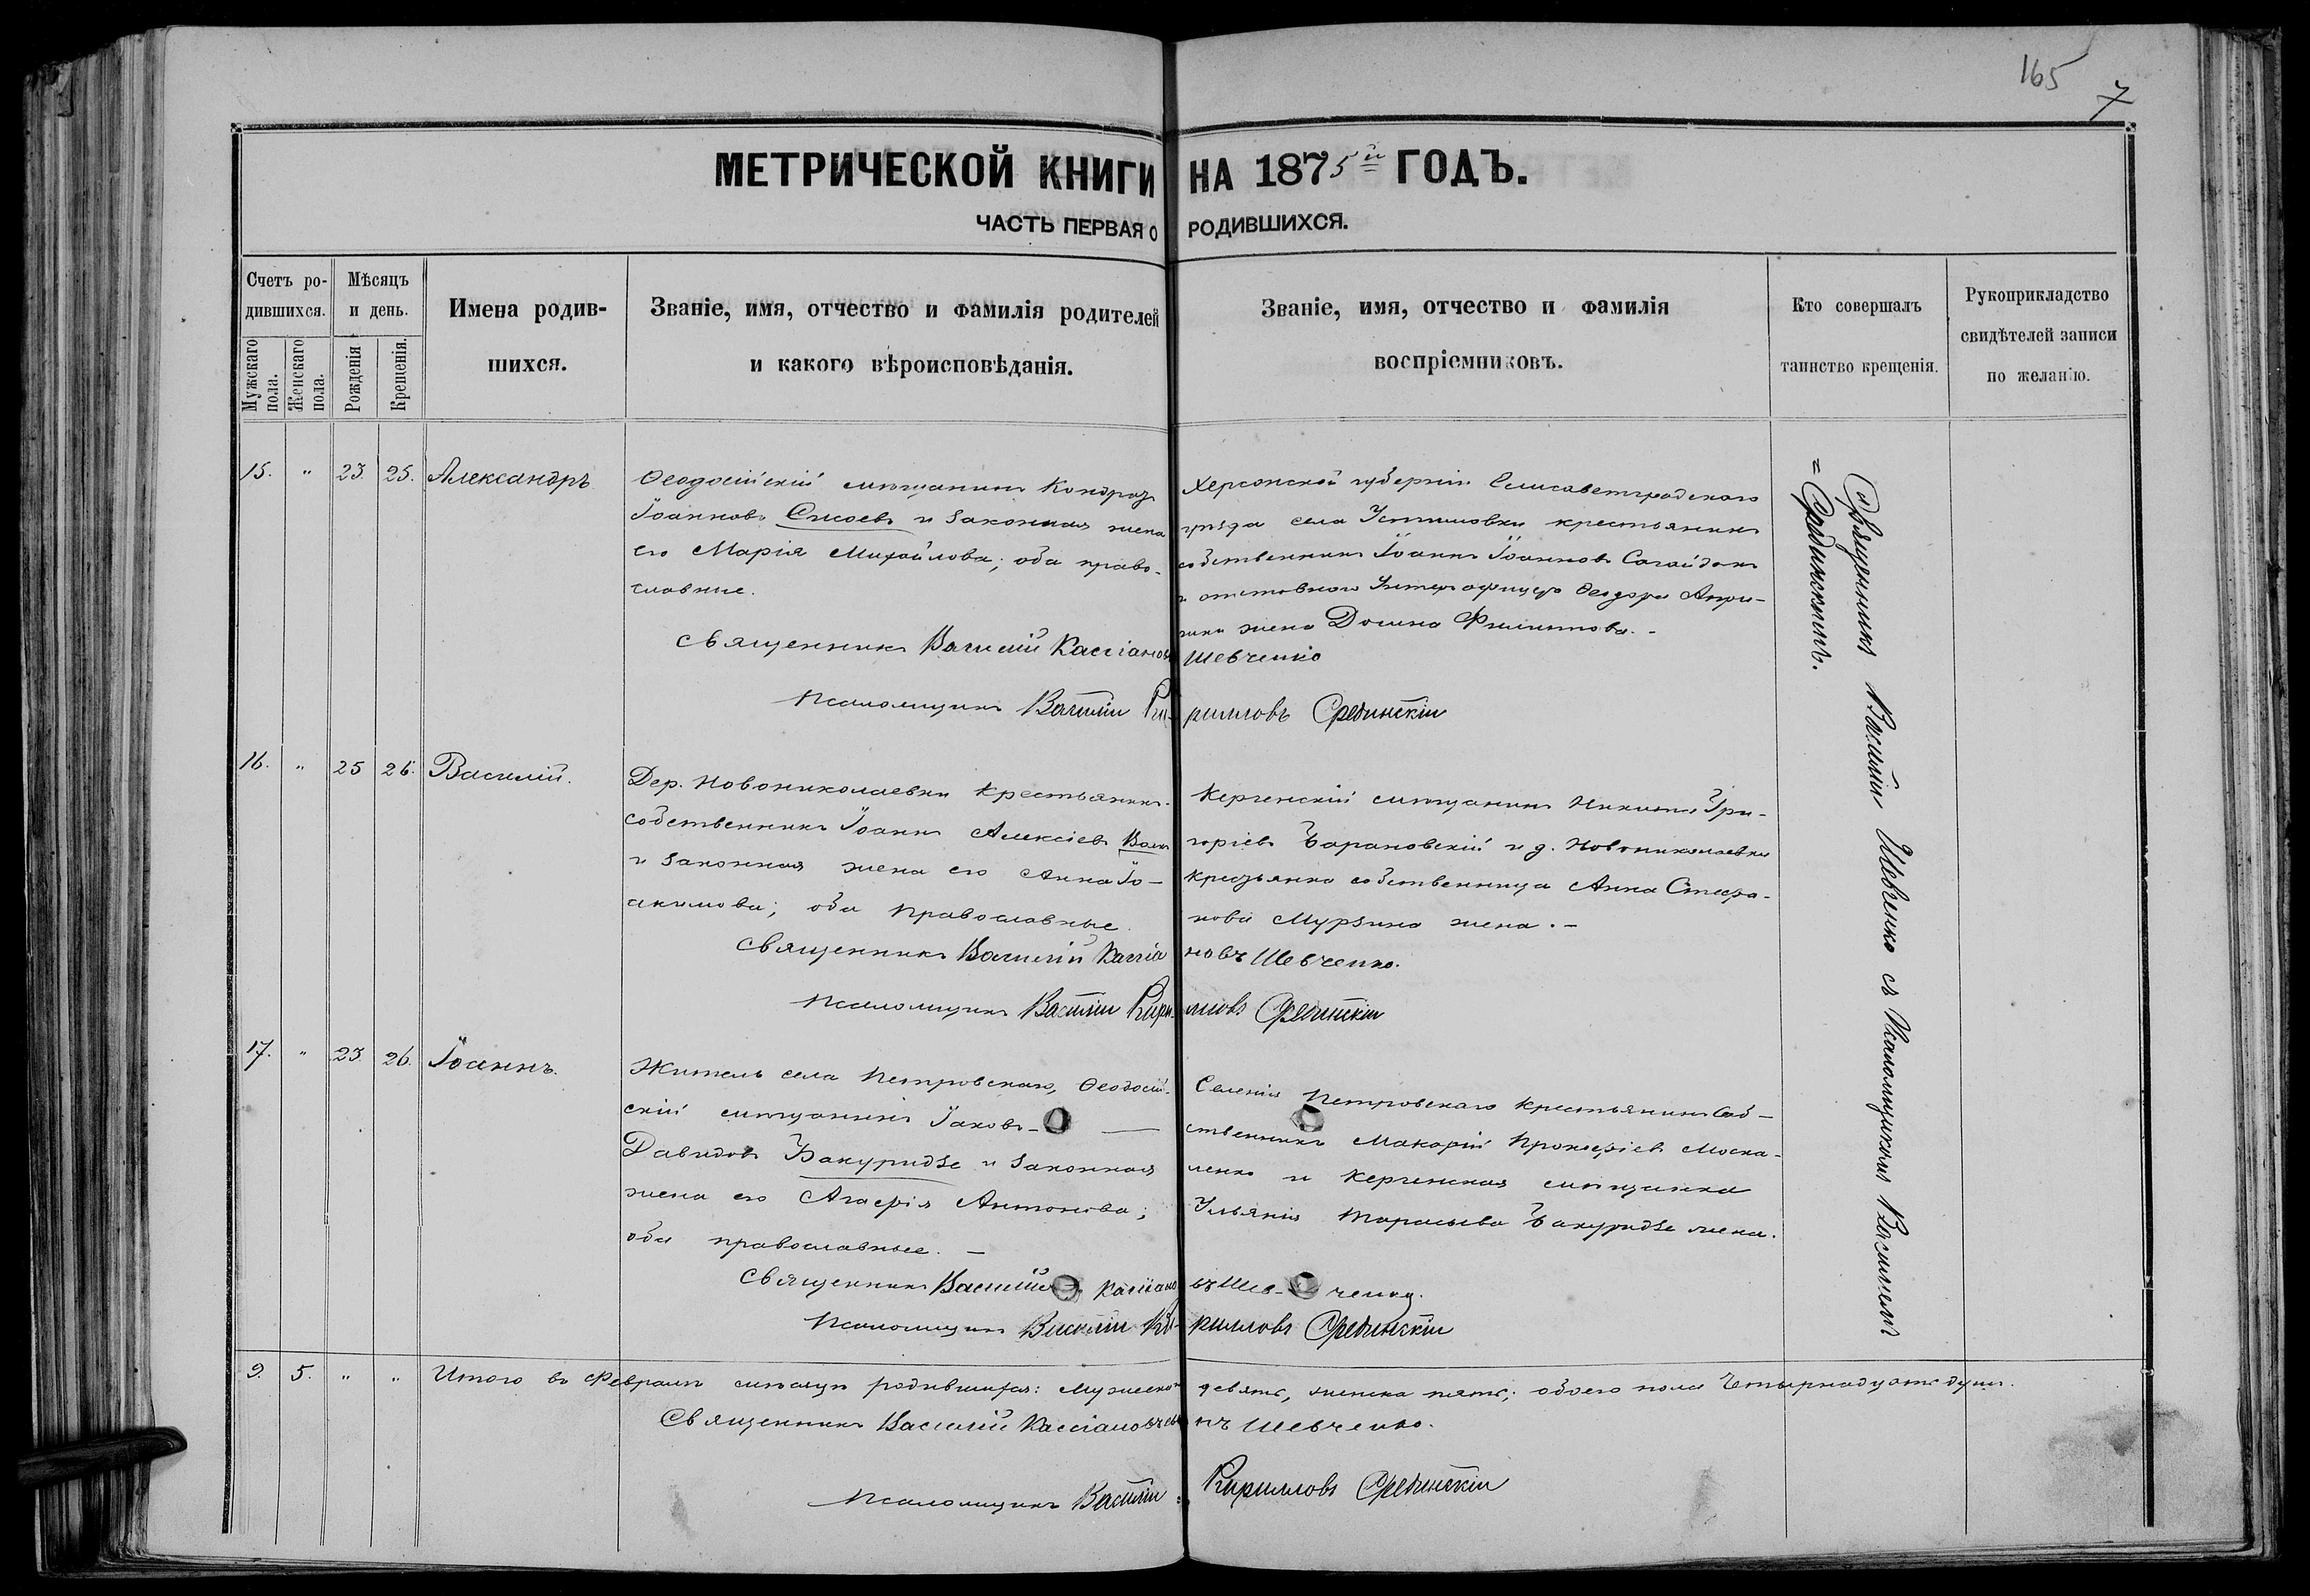 165
7
МЕТРИЧЕСКОЙ КНИГИ НА 1875й ГОДЪ.
ЧАСТЬ ПЕРВАЯ О РОДИВШИХСЯ.
Счетъ ро-
дившихся.
Мужскаго пола.
Женскаго пола.
Мѣсяцъ
и день.
Рожденія
Крещенія.
Имена родив-
шихся.
Званіе, имя, отчество и фамилія родителей
и какого вѣроисповѣданія.
Званіе, имя, отчество и фамилія
воспріемниковъ.
Кто совершалъ
таинство крещенія.
Рукоприкладство
свидѣтелей записи
по желанію.
15. " 23. 25. Александръ
Ѳеодосійскій мѣщанинъ Кондратъ
Іоанновъ Сысоевъ и законная жена
его Марія Михайлова; оба право-
славные.
Херсонской губерніи Елисаветградскаго
уѣзда села Устиновки крестьянинъ
собственникъ Іоаннъ Іоанновъ Сагайдакъ
и отставнаго Унтеръ офицера Ѳеодора
жена Домна Филиппова. -
Священникъ Василій Кассіановъ Шевченко
Псаломщикъ Василій Кирилловъ Срединскій
16. " 25 26. Василій.
Дер. Новониколаевки Крестьянинъ-
собственникъ Іоаннъ Алексіевъ
и законная жена его Анна Іо-
акимова; оба православные.
Керченскій мѣщанинъ Никита Гри-
горіевъ Барановскій и д. Новониколаевки
собственница Анна Стефа-
нова Мурзина жена. -
Священникъ Василій Кассіановъ Шевченко.
Псаломщикъ Василій Кирилловъ Срединскій
17. " 23. 26. Іоаннъ.
Житель села Петровскаго, Ѳеодосій-
скій мѣщанинъ Іаковъ -
Давидовъ Бакуридзе и законная
жена его Агафія Антонова;
оба православные. -
Селенія Петровскаго крестьянинъ соб-
ственникъ Макарій Прокофіевъ Моска-
ленко и Керченская мѣщанка
Ульянія Тарасьева Бакуридзе жена.
Священникъ Василій Кассіановъ Шев-ченко.
Псаломщикъ Василій Кирилловъ Срединскій
Священникъ Василій Шевченко съ Псаломщикомъ Василіемъ
= Срединскимъ.
9. 5. " " Итого въ Февралѣ мѣсяцѣ родившихся: Мужеска девять, женска пять; обоего пола Четырнадцать душъ.
Священникъ Василій Шевченко.
Псаломщикъ Василій Кирилловъ Срединскій